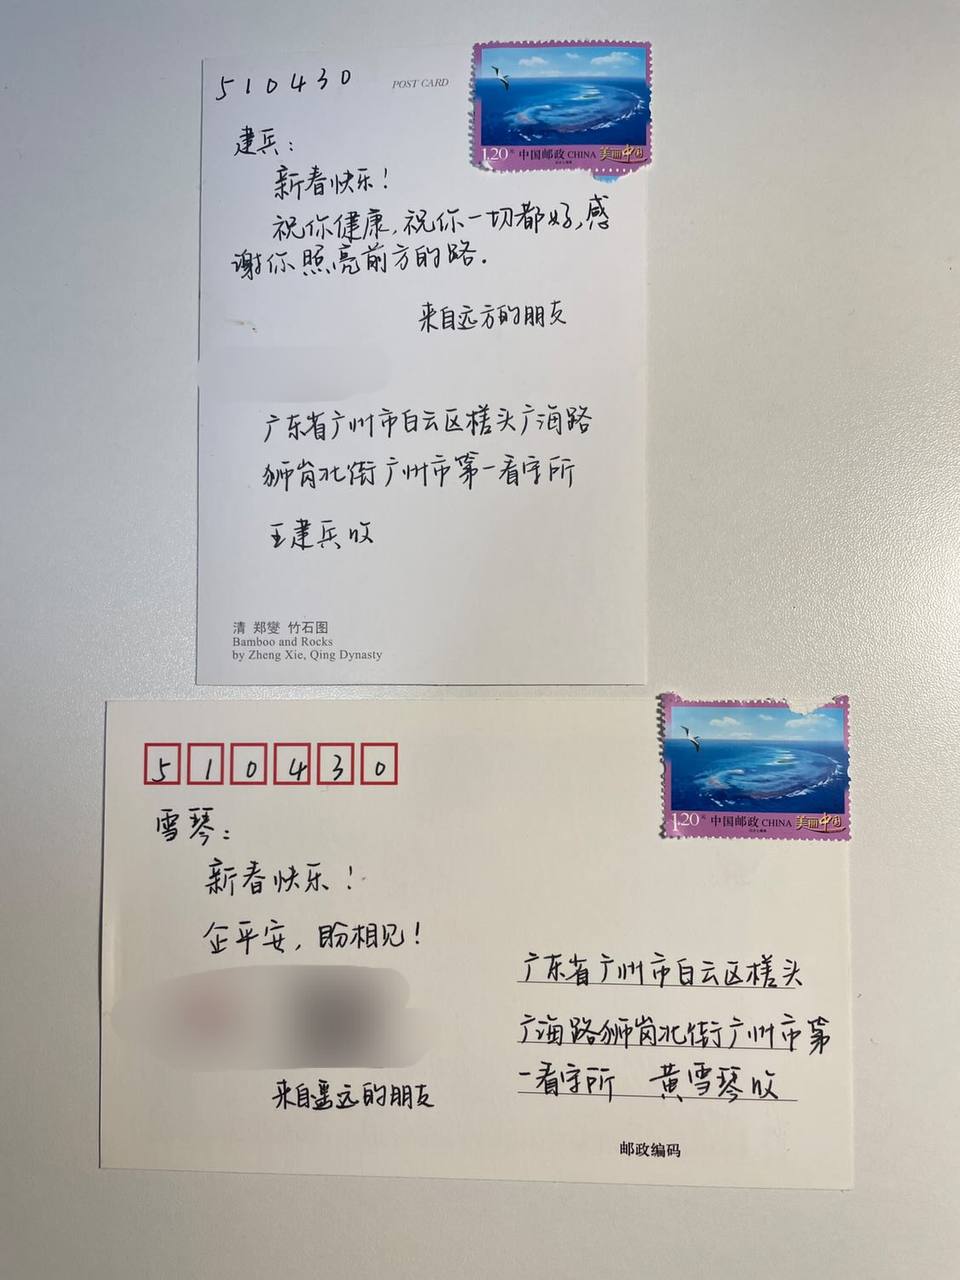 510430
POST CARD
1.20元 中国邮政 CHINA 美丽中国
建兵：
新春快乐！
祝你健康，祝你一切都好，感
谢你照亮前方的路．
来自远方的朋友
广东省广州市白云区槎头广海路
狮岗北街广州市第一看守所
王建兵收
清 郑燮 竹石图
Bamboo and Rocks
by Zheng Xie, Qing Dynasty
510430
1.20元 中国邮政 CHINA 美丽中国
雪琴：
新春快乐！
企平安，盼相见！
来自遥远的朋友
广东省广州市白云区槎头
广海路狮岗北街广州市第
一看守所 黄雪琴收
邮政编码